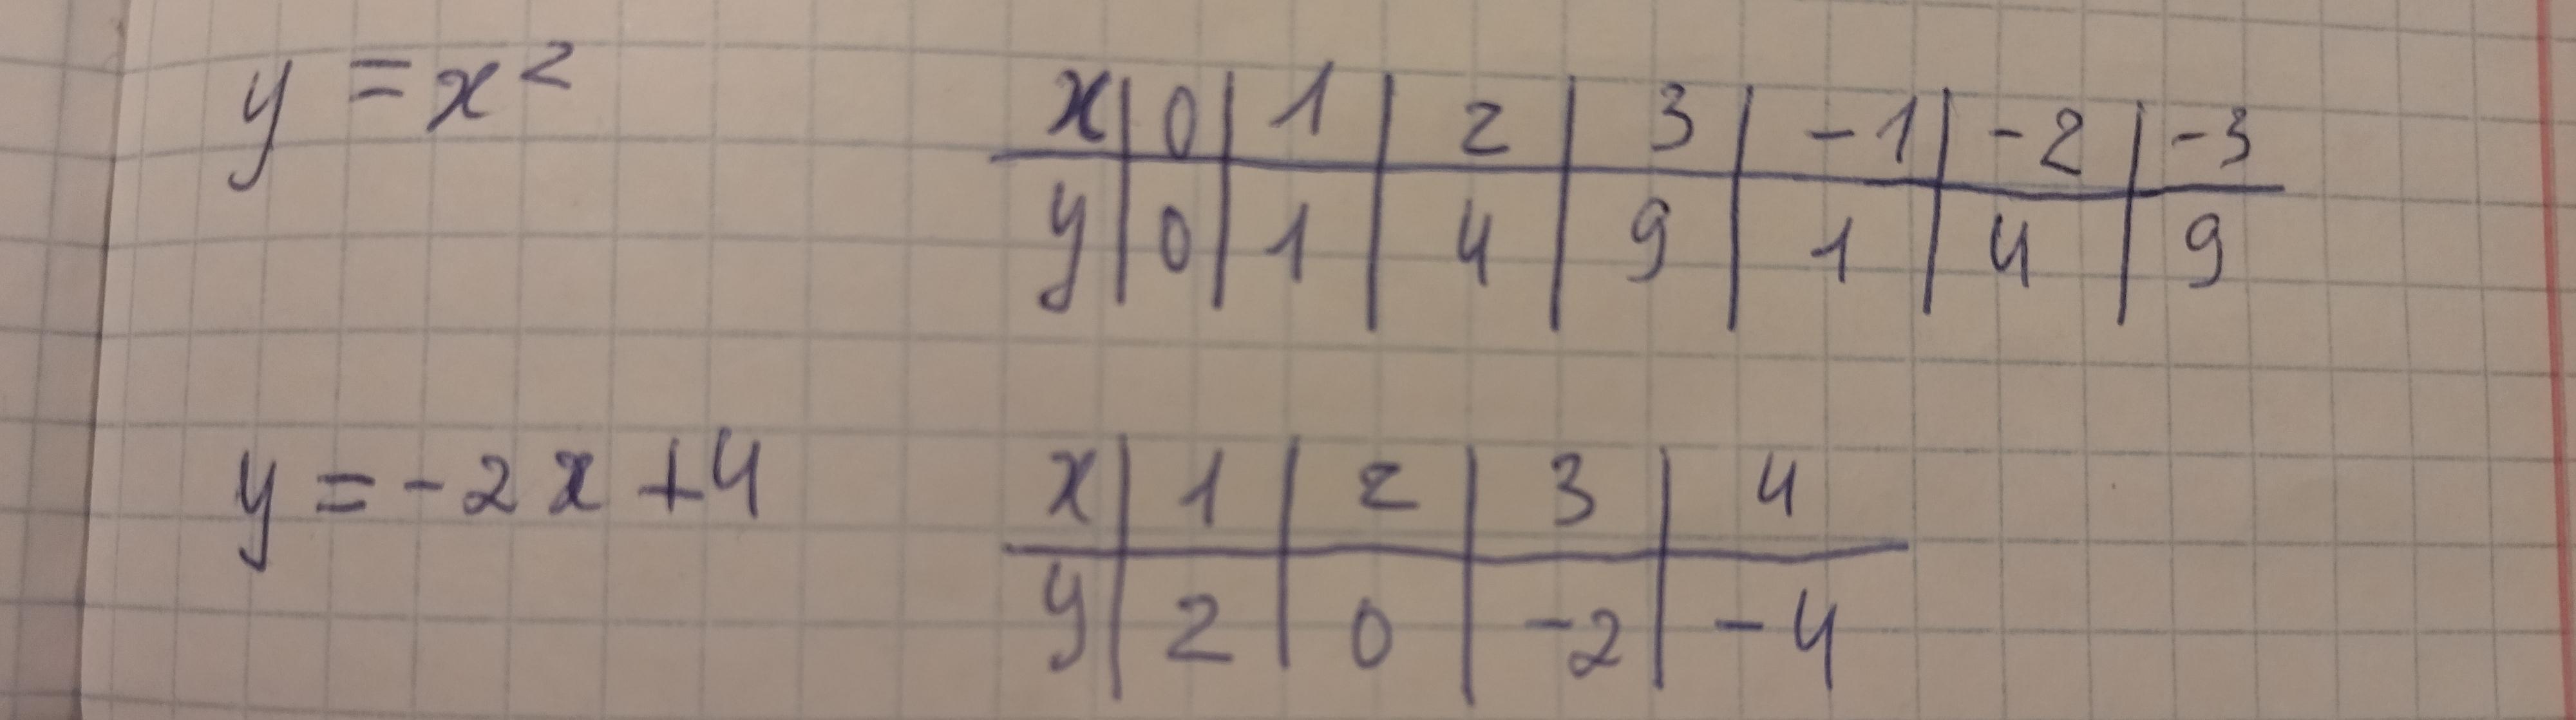 y = x²
x | 0 | 1 | 2 | 3 | -1 | -2 | -3
y | 0 | 1 | 4 | 9 | 1 | 4 | 9
y = -2x + 4
x | 1 | 2 | 3 | 4
y | 2 | 0 | -2 | -4